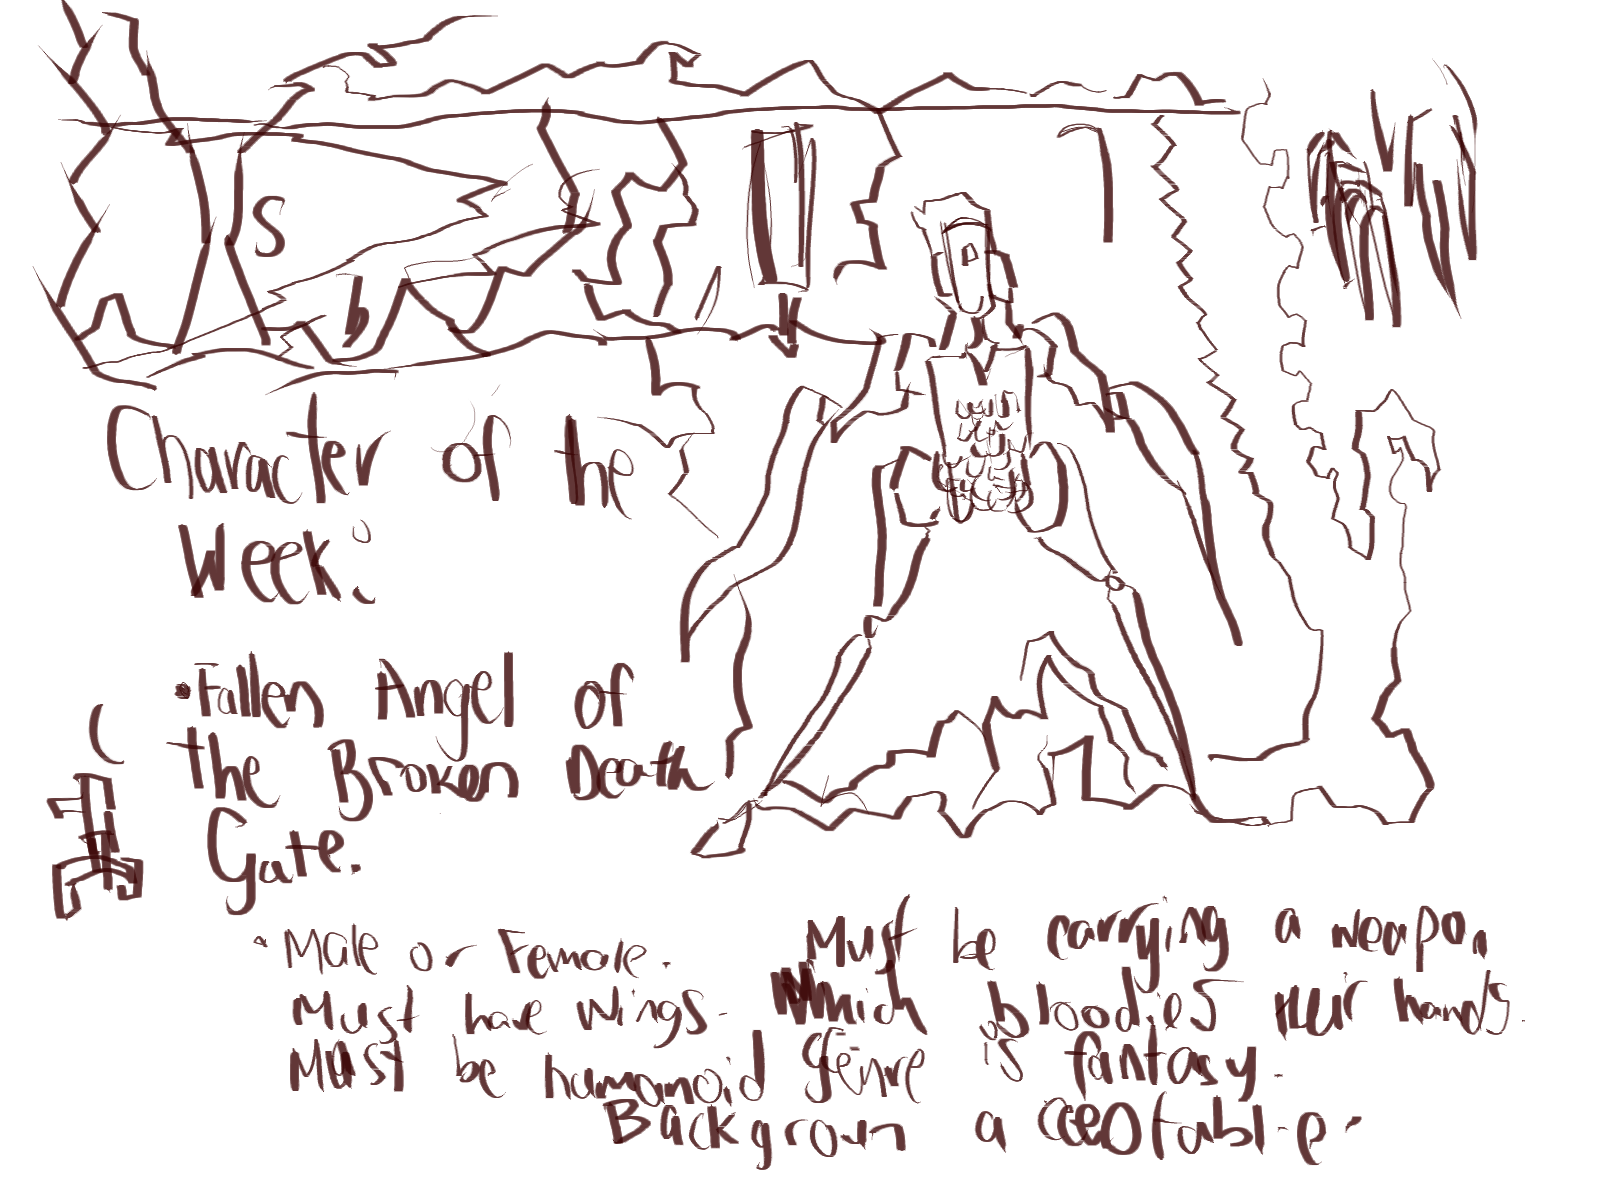 S
b
Character of the
Week:
•Fallen Angel of
the Broken Death
Gate.
•Male or Female.
Must have wings.
Must be humanoid
Must be carrying a weapon
Which bloodies their hands.
Genre is fantasy.
Backgroun acceotable.